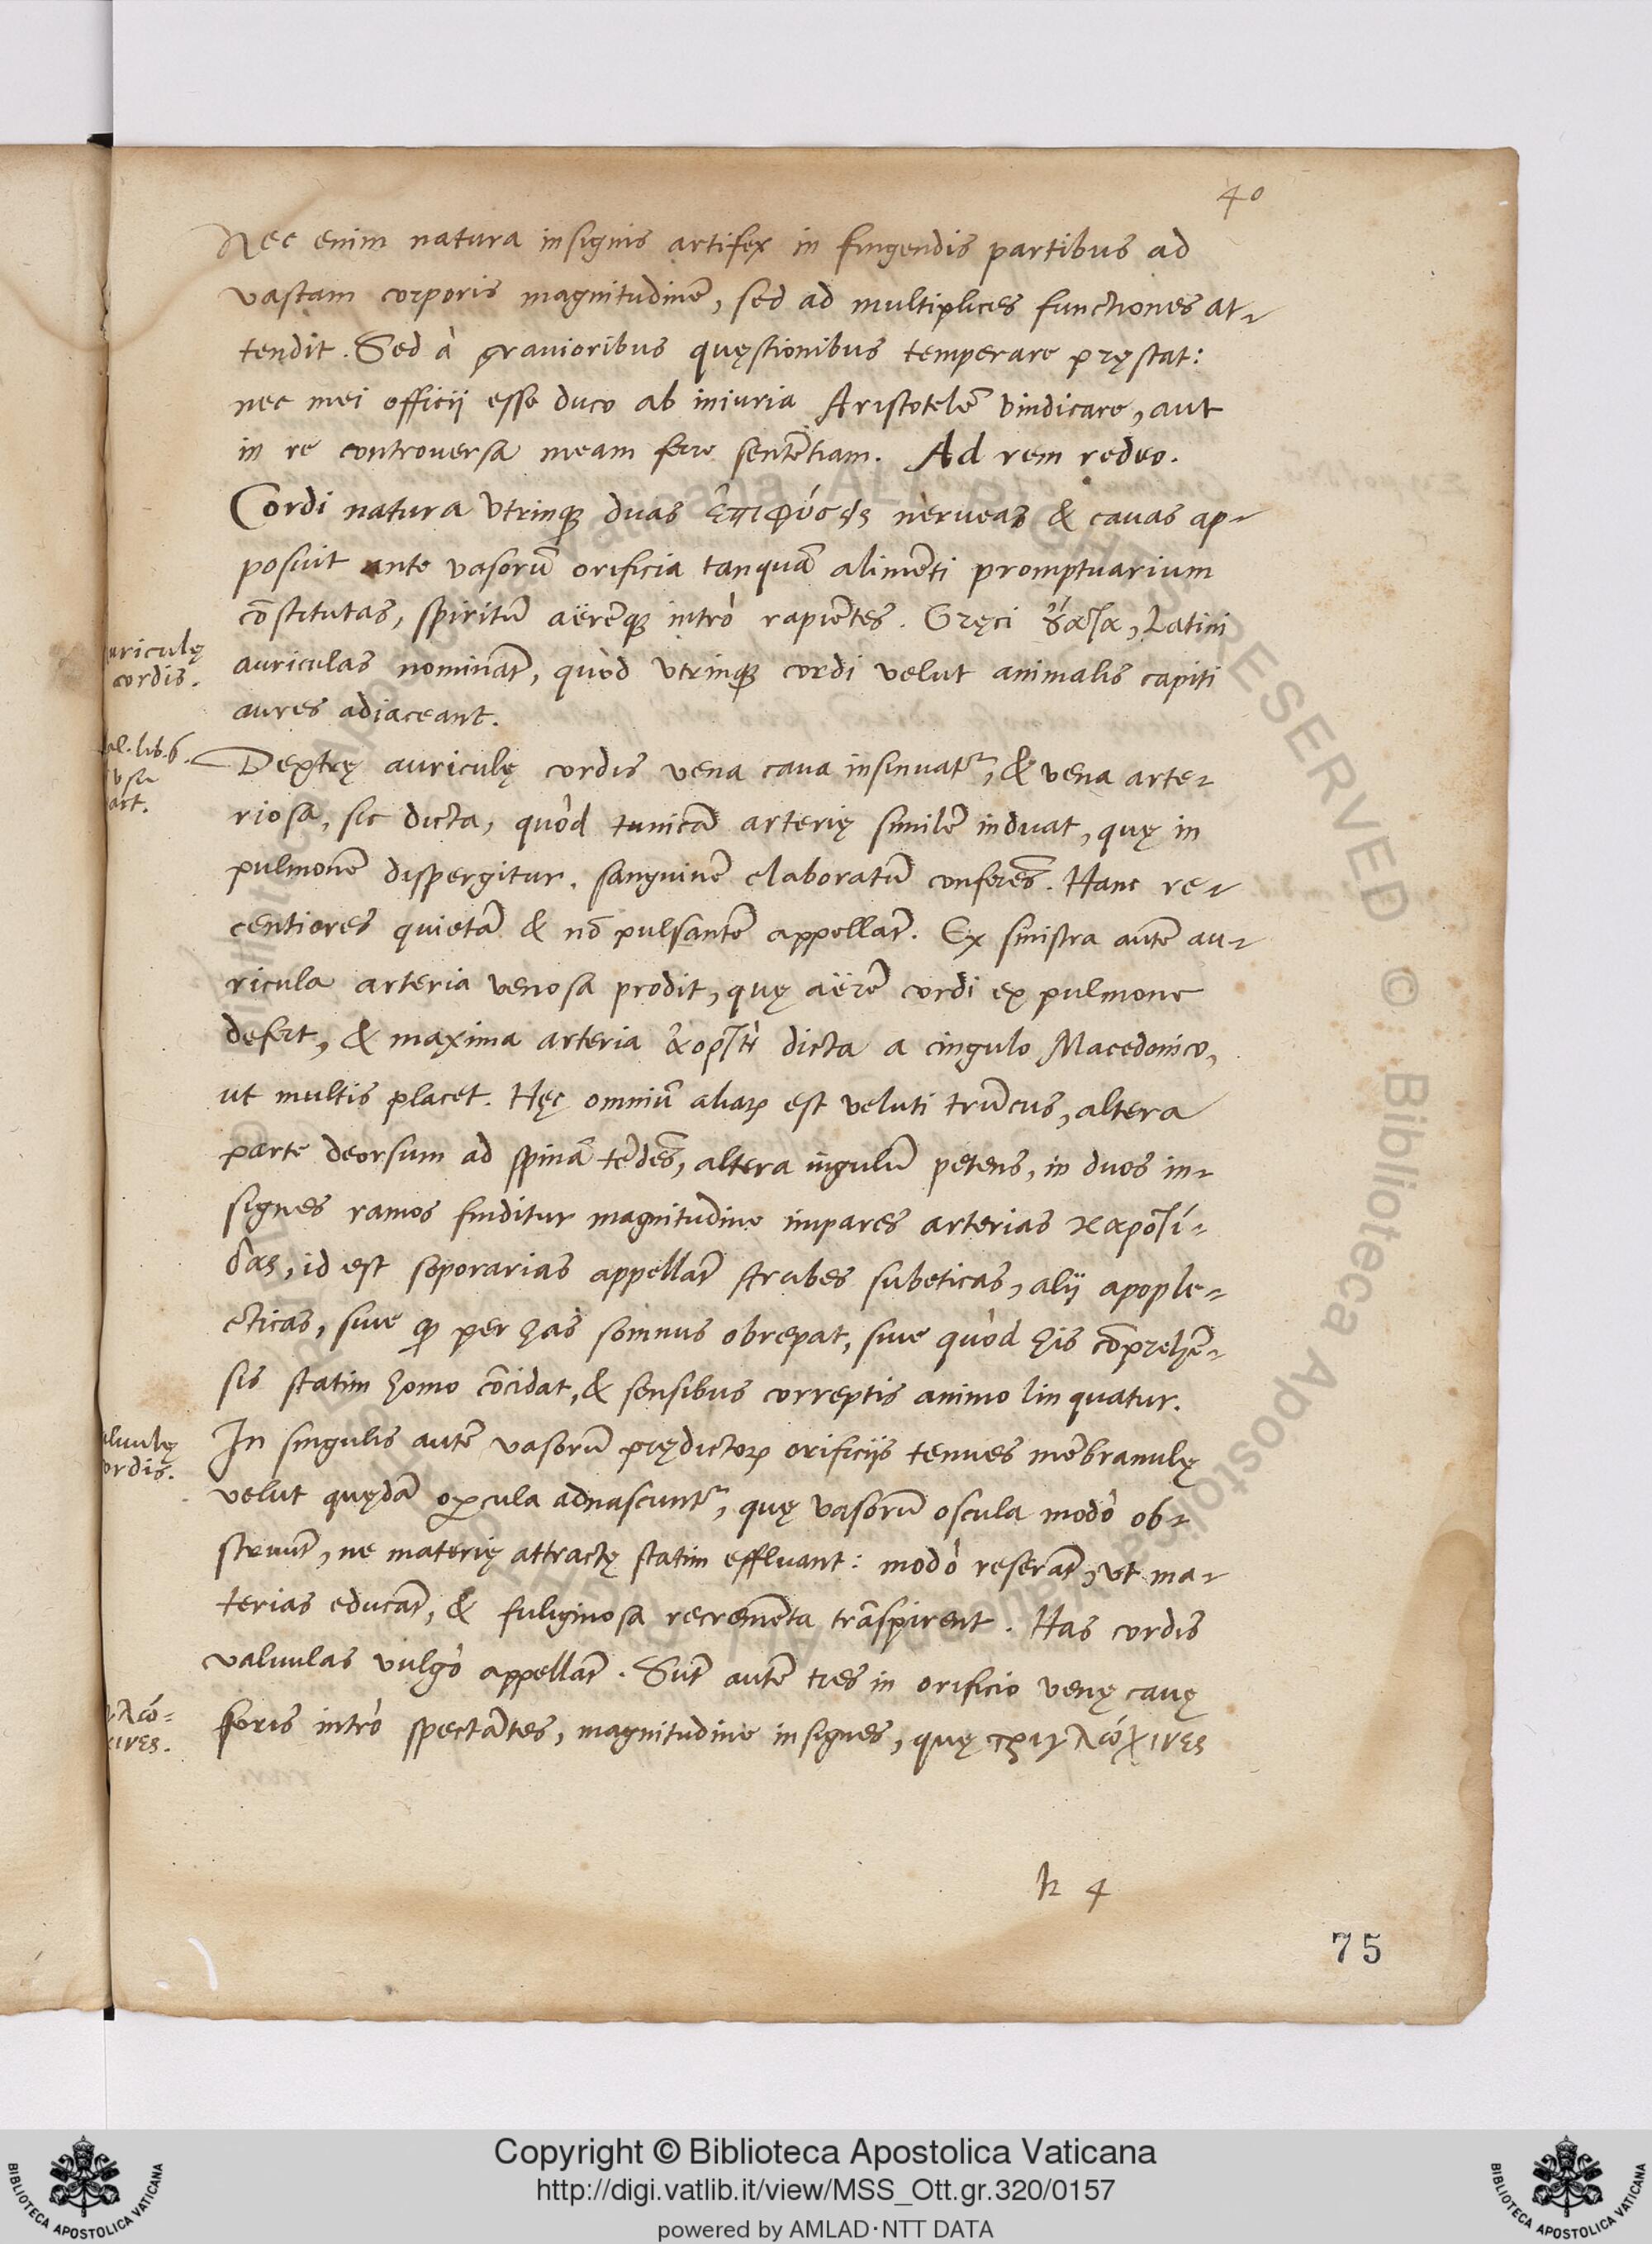 40
Nec enim natura insignis artifex in fingendis partibus ad
vastam corporis magnitudinē, sed ad multiplices functiones at-
tendit. Sed à grauioribus quęstionibus temperare pręstat:
nec mei officij esse duco ab iniuria Aristotelē vindicare, aut
in re controuersa meam ferre sentētiam. Ad rem redeo.
Cordi natura vtrinqꝫ duas ἐπιφύσεις nerueas & cauas ap-
posuit ante vasorū orificia tanquā alimēti promptuarium
cōstitutas, spiritū aërēqꝫ intrò rapiētes. Gręci ὄατα, Latini
auriculas nomināt, quòd vtrinqꝫ cordi velut animalis capiti
aures adiaceant.
uriculę
cordis.
al. lib. 6.
vsu
art.
Dextrę auriculę cordis vena caua insinuatr, & vena arte-
riosa, sic dicta, quòd tunicā arterię similē induat, quę in
pulmonē dispergitur, sanguinē elaboratū conferēs. Hanc re-
centiores quietā & nō pulsantē appellāt. Ex sinistra autē au-
ricula arteria venosa prodit, quę aërē cordi ex pulmone
defert, & maxima arteria ἀορτὴ dicta a cingulo Macedonico,
ut multis placet. Hęc omniū aliaꝝ est veluti trūcus, altera
parte deorsum ad spinā tēdēs, altera iugulū petens, in duos in-
signes ramos finditur magnitudine impares arterias καροτί-
δας, id est soporarias appellāt Arabes subeticas, alij apople-
cticas, siue qꝫ per has somnus obrepat, siue quòd his cōprehē-
sis statim homo cōcidat, & sensibus correptis animo linquatur.
luulę
ordis.
In singulis autē vasorū prędictoꝝ orificijs tenues mēbranulę
velut quędā oꝑcula adnascuntr, quę vasorū oscula modò ob-
struūt, ne materię attractę statim effluant: modò reserāt, vt ma-
terias educāt, & fuliginosa recremēta trāspirent. Has cordis
valuulas vulgò appellāt. Sūt autē tres in orificio venę cauę
foris intrò spectātes, magnitudine insignes, quę τριγλώχινες
γλώ-
χινες.
h 4
75
Copyright © Biblioteca Apostolica Vaticana
http://digi.vatlib.it/view/MSS_Ott.gr.320/0157
powered by AMLAD·NTT DATA
BIBLIOTECA APOSTOLICA VATICANA
BIBLIOTECA APOSTOLICA VATICANA